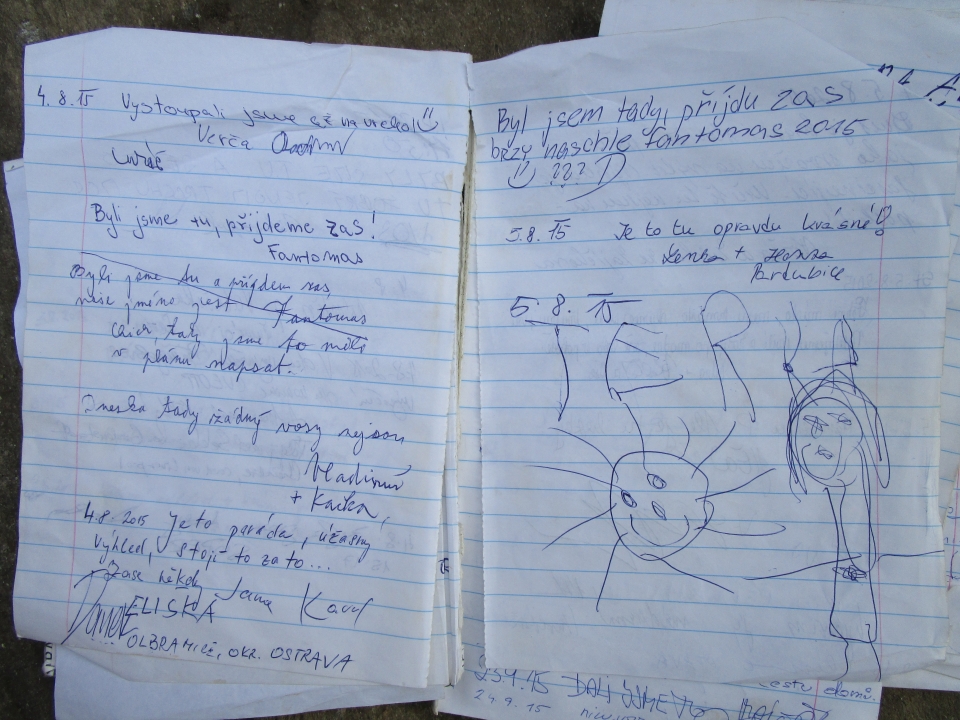 4.8.15 Vystoupali jsme až na vrchol
Verča
Byli jsme tu, přijdeme zas!
Fantomas
Byli jsme tu a přijdem zas,
naše jméno jest Fantomas
tady jsme to měli
v plánu napsat.
Dneska tady žádný vosy nejsou
Vladimír
+ Kačka,
4.8.2015 Je to paráda, úžasný
výhled, stojí to za to...
Zase někdy Jana
ELIŠKA
OLBRAMICE, OKR. OSTRAVA
Byl jsem tady, přijdu zas
brzy naschle fantomas 2015
???
5.8.15 Je to tu opravdu krásné!
Lenka + Honza
Pardubice
5.8.15
25.9.15 BYLI JSME TU
24.9.15
cestu domů.